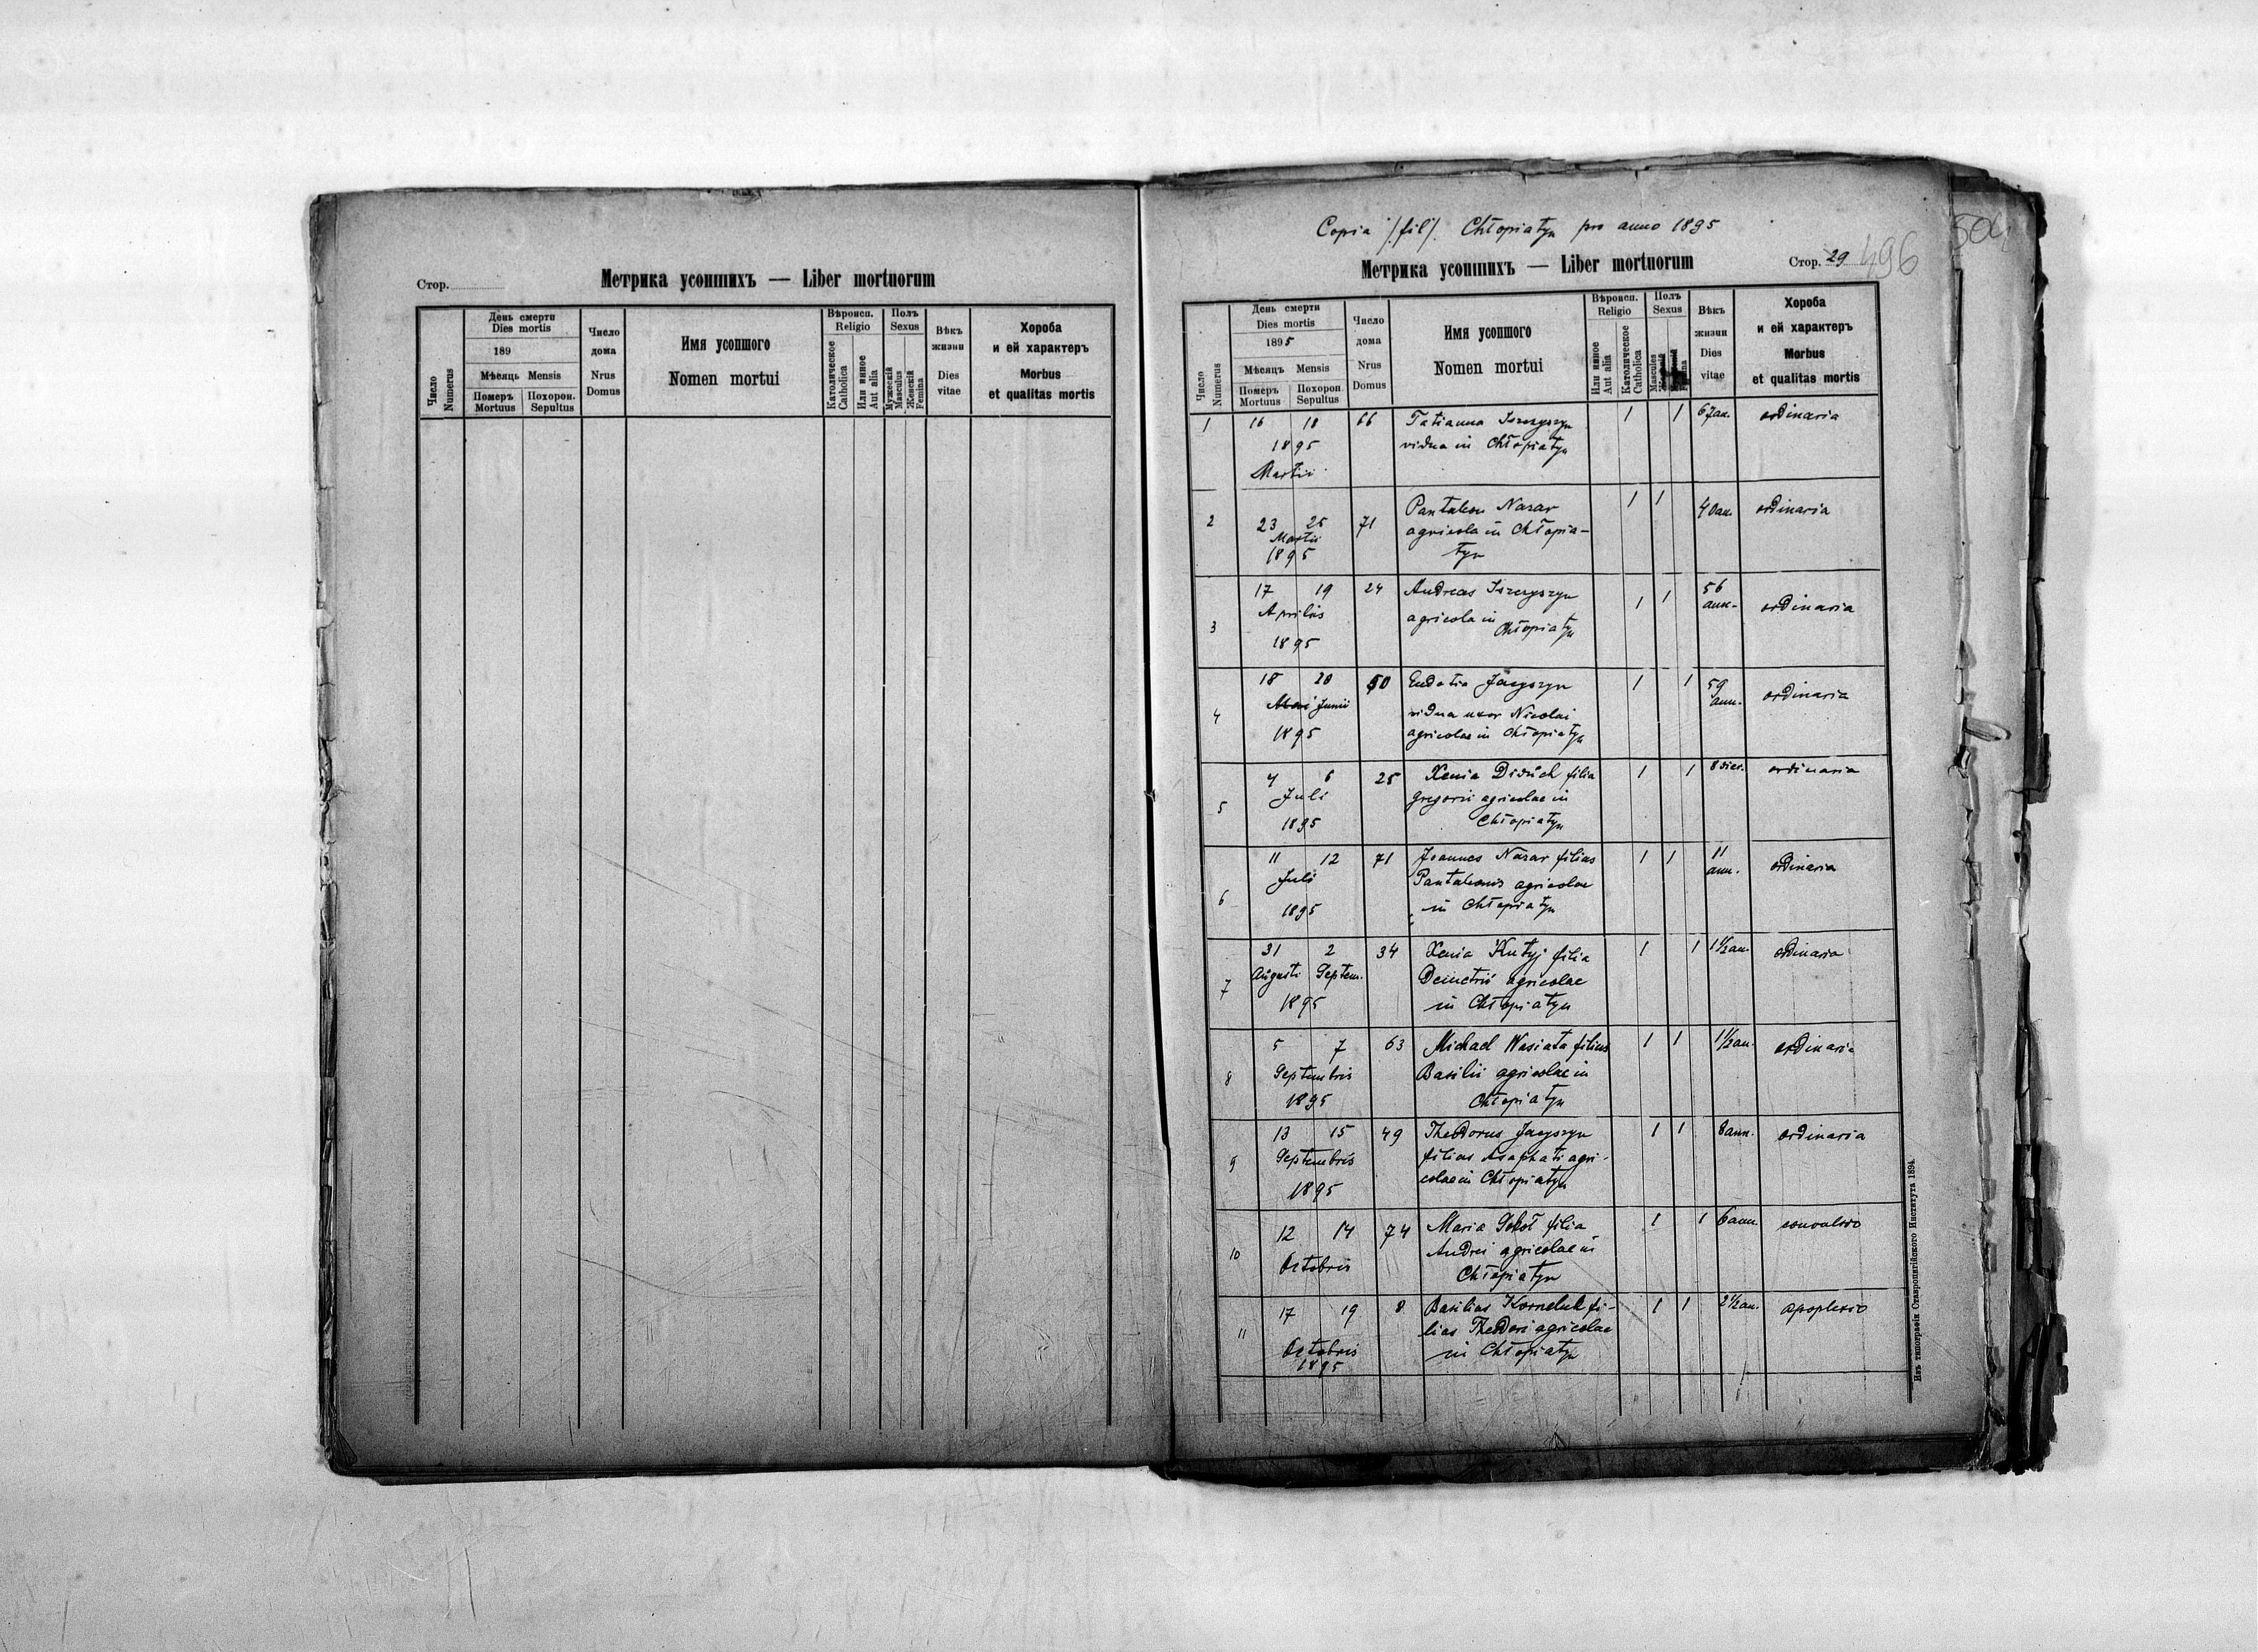 Стор.
Метрика усопшихъ — Liber mortuorum
Число
Numerus
День смерти
Dies mortis
189
Мѣсяць Mensis
Померъ
Mortuus
Похорон.
Sepultus
Число
дома
Nrus
Domus
Имя усопшого
Nomen mortui
Вѣроисп.
Religio
Католическое
Catholica
Или инное
Aut alia
Полъ
Sexus
Мужескій
Masculus
Женскій
Femina
Вѣкъ
жизни
Dies
vitae
Хороба
и ей характеръ
Morbus
et qualitas mortis
Copia /:fil:/. Chłopiatyn pro anno 1895
Метрика усопшихъ — Liber mortuorum
Стор. 29
496
504
Число
Numerus
День смерти
Dies mortis
1895
Мѣсяць Mensis
Померъ
Mortuus
Похорон.
Sepultus
Число
дома
Nrus
Domus
Имя усопшого
Nomen mortui
Вѣроисп.
Religio
Или инное
Aut alia
Католическое
Catholica
Полъ
Sexus
Masculus
Femina
Вѣкъ
жизни
Dies
vitae
Хороба
и ей характеръ
Morbus
et qualitas mortis
1 16 18 66 Tatianna Iszczyszyn 1 1 67 an. ordinaria
1895 vidua in Chłopiatyn
Martii
2 23 25 71 Pantaleon Nazar 1 1 40 an. ordinaria
Martii agricola in Chłopia-
1895 tyn
3 17 19 24 Andreas Iszczyszyn 1 1 56 ann. ordinaria
Aprilis agricola in
1895 Chłopiatyn
4 18 20 50 Eudotia Jacyszyn 1 1 59 ann. ordinaria
Junii vidua uxor Nicolai
1895 agricolae in Chłopiatyn
5 4 6 25 Xenia Diduch filia 1 1 8 dier. ordinaria
Juli Gregorii agricolae in
1895 Chłopiatyn
6 11 12 71 Joannes Nazar filius 1 1 11 ann. ordinaria
Juli Pantaleonis agricolae
1895 in Chłopiatyn
7 31 2 34 Xenia Kutyj filia 1 1 1½ an. ordinaria
Augusti Septem. Demetrii agricolae
1895 in Chłopiatyn
8 5 7 63 Michael Wasiata filius 1 1 1½ an. ordinaria
Septembris Basilii agricolae in
1895 Chłopiatyn
9 13 15 49 Theodorus Jacyszyn 1 1 8 ann. ordinaria
Septembris filius Asaphati agri-
1895 colae in Chłopiatyn
10 12 14 74 Maria Sokoł filia 1 1 6 ann. convulsio
Octobris Andrei agricolae in
Chłopiatyn
11 17 19 8 Basilius Korneluk fi- 1 1 2½ an. apoplexio
Octobris lius Theodori agricolae
1895 in Chłopiatyn
Изъ типографіи Ставропигійского Института 1894.